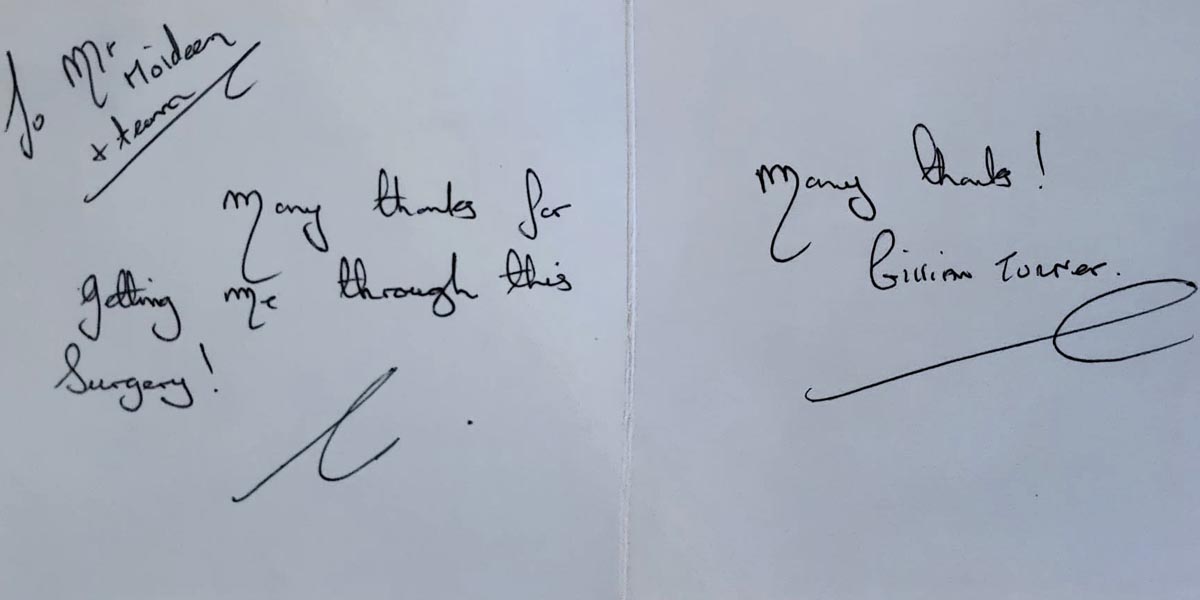 To Mr
Moideen
& team
Many thanks for
getting me through this
Surgery!
Many thanks!
Gillian Turner.